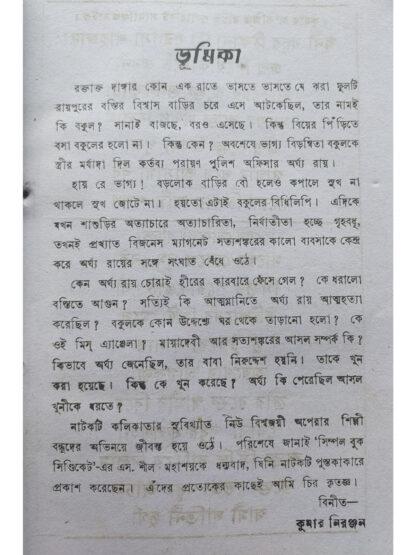 ভূমিকা
রক্তাক্ত দাঙ্গার কোন এক রাতে ভাসতে ভাসতে যে ঝরা ফুলটি
রায়পুরের বস্তির বিশ্বাস বাড়ির চরে এসে আটকেছিল, তার নামই
কি বকুল? সানাই বাজছে, বরও এসেছে। কিন্তু বিয়ের পিঁড়িতে
বসা বকুলের হলো না। কিন্তু কেন? অবশেষে ভাগ্য বিড়ম্বিতা বকুলকে
স্ত্রীর মর্যাদা দিল কর্তব্য পরায়ণ পুলিশ অফিসার অর্ঘ্য রায়।
হায় রে ভাগ্য! বড়লোক বাড়ির বৌ হলেও কপালে সুখ না
থাকলে সুখ জোটে না। হয়তো এটাই বকুলের বিধিলিপি। এদিকে
যখন শাশুড়ির অত্যাচারে অত্যাচারিতা, নির্যাতীতা হচ্ছে গৃহবধূ,
তখনই প্রখ্যাত বিজনেস ম্যাগনেট সত্যশঙ্করের কালো ব্যবসাকে কেন্দ্র
করে অর্ঘ্য রায়ের সঙ্গে সংঘাত বেঁধে ওঠে।
কেন অর্ঘ্য রায় চোরাই হীরের কারবারে ফেঁসে গেল? কে ধরালো
বস্তিতে আগুন? সত্যিই কি আত্মগ্লানিতে অর্ঘ্য রায় আত্মহত্যা
করেছিল? বকুলকে কোন উদ্দেশ্যে ঘর থেকে তাড়ানো হলো? কে
ওই মিস্ এ্যাঞ্জেলা? মায়াদেবী আর সত্যশঙ্করের আসল সম্পর্ক কি?
কিভাবে অর্ঘ্য জেনেছিল, তার বাবা নিরুদ্দেশ হয়নি। তাকে খুন
করা হয়েছে। কিন্তু কে খুন করেছে? অর্ঘ্য কি পেরেছিল আসল
খুনীকে ধরতে?
নাটকটি কলিকাতার সুবিখ্যাত নিউ বিশ্বজয়ী অপেরার শিল্পী
বন্ধুদের অভিনয়ে জীবন্ত হয়ে ওঠে। পরিশেষে জানাই ‘সিম্পল বুক
সিন্ডিকেট’-এর এস. শীল মহাশয়কে ধন্যবাদ, যিনি নাটকটি পুস্তকাকারে
প্রকাশ করেছেন। এঁদের প্রত্যেকের কাছেই আমি চির কৃতজ্ঞ।
বিনীত—
কুমার নিরঞ্জন